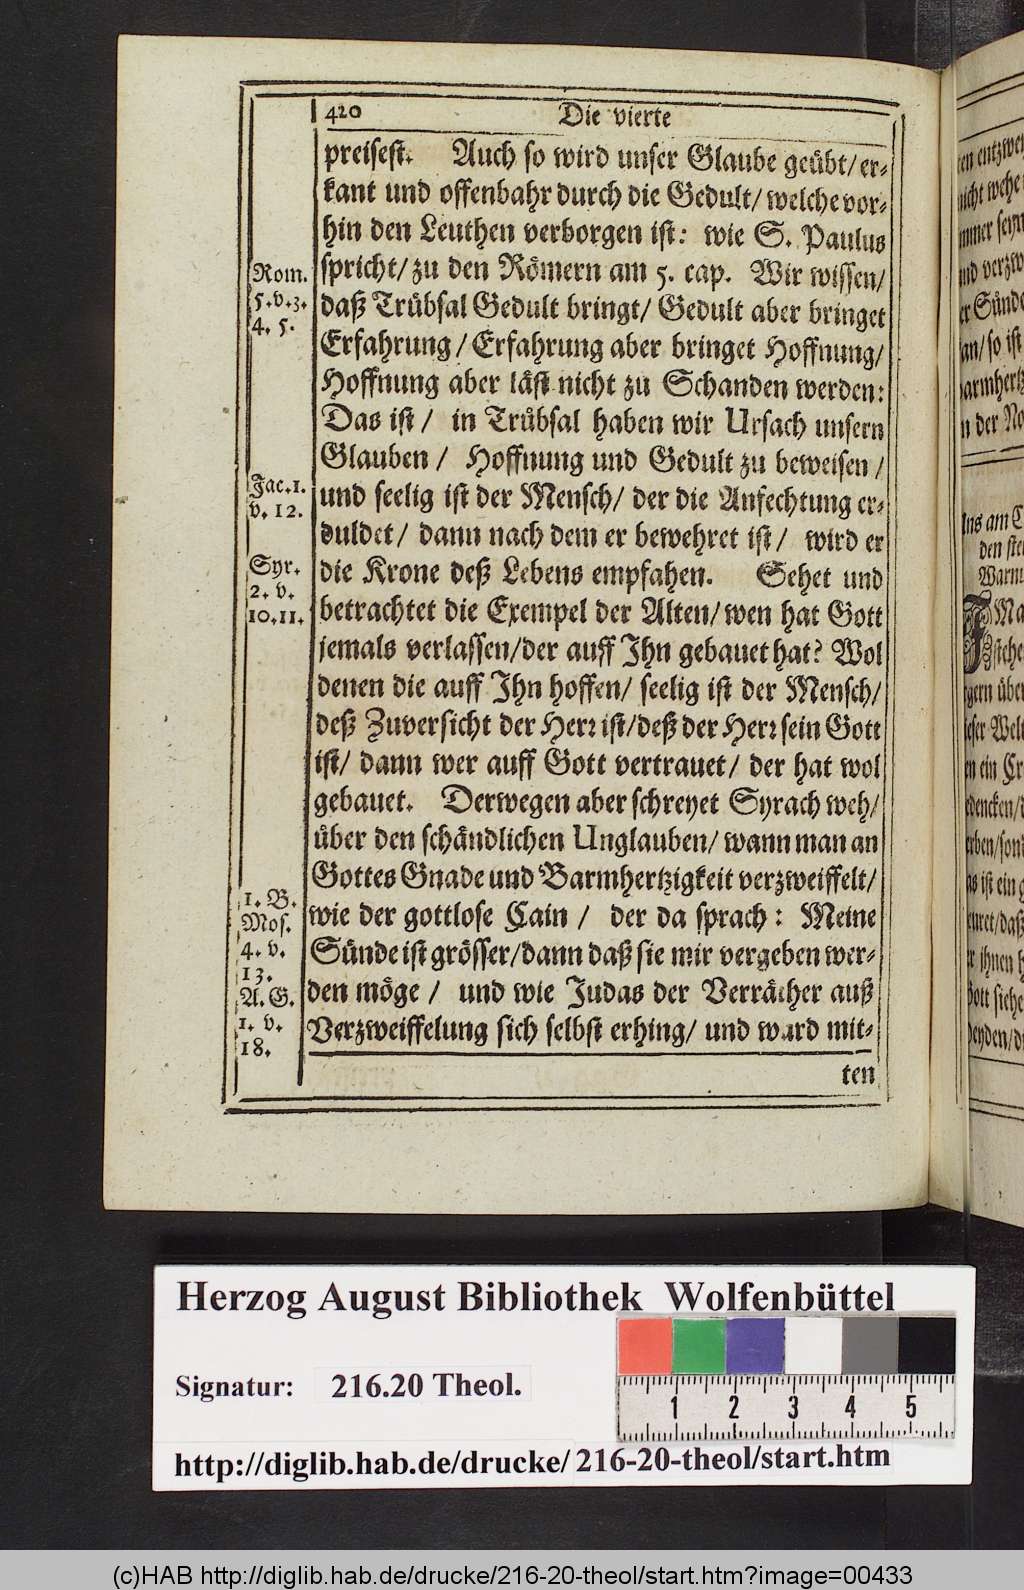 420 Die vierte
preisest. Auch so wird unser Glaube geübt/ er-
kant und offenbahr durch die Gedult/ welche vor-
hin den Leuthen verborgen ist: wie S. Paulus
spricht/ zu den Römern am 5. cap. Wir wissen/
daß Trübsal Gedult bringt/ Gedult aber bringet
Erfahrung/ Erfahrung aber bringet Hoffnung/
Hoffnung aber läst nicht zu Schanden werden:
Das ist/ in Trübsal haben wir Ursach unsern
Glauben/ Hoffnung und Gedult zu beweisen/
und seelig ist der Mensch/ der die Anfechtung er-
duldet/ dann nach dem er bewehret ist/ wird er
die Krone deß Lebens empfahen. Sehet und
betrachtet die Exempel der Alten/ wen hat Gott
jemals verlassen/ der auff Ihn gebauet hat? Wol
denen die auff Ihn hoffen/ seelig ist der Mensch/
deß Zuversicht der Herr ist/ deß der Herr sein Gott
ist/ dann wer auff Gott vertrauet/ der hat wol
gebauet. Derwegen aber schreyet Syrach weh/
über den schändlichen Unglauben/ wann man an
Gottes Gnade und Barmhertzigkeit verzweiffelt/
wie der gottlose Cain/ der da sprach: Meine
Sünde ist grösser/ dann daß sie mir vergeben wer-
den möge/ und wie Judas der Verräther auß
Verzweiffelung sich selbst erhing/ und ward mit-
ten
Rom.
5. v. 3.
4. 5.
Jac. 1.
v. 12.
Syr.
2. v.
10. 11.
1. B.
Mos.
4. v.
13.
A. G.
1. v.
18.
en entzwey
nicht wehe
mmer seyn
nd verzw
er Sünde
an/ so ist
barmhertz
n der No
ns am C
den ste
Warum
Ma
stehe
gern über
eser Welt
en ein Cr
edencken/
erben/ sond
as ist ein g
euret/ daß
r ihnen h
Gott siehe
eyden/ d
Herzog August Bibliothek Wolfenbüttel
Signatur: 216.20 Theol.
1 2 3 4 5
http://diglib.hab.de/drucke/216-20-theol/start.htm
(c)HAB http://diglib.hab.de/drucke/216-20-theol/start.htm?image=00433